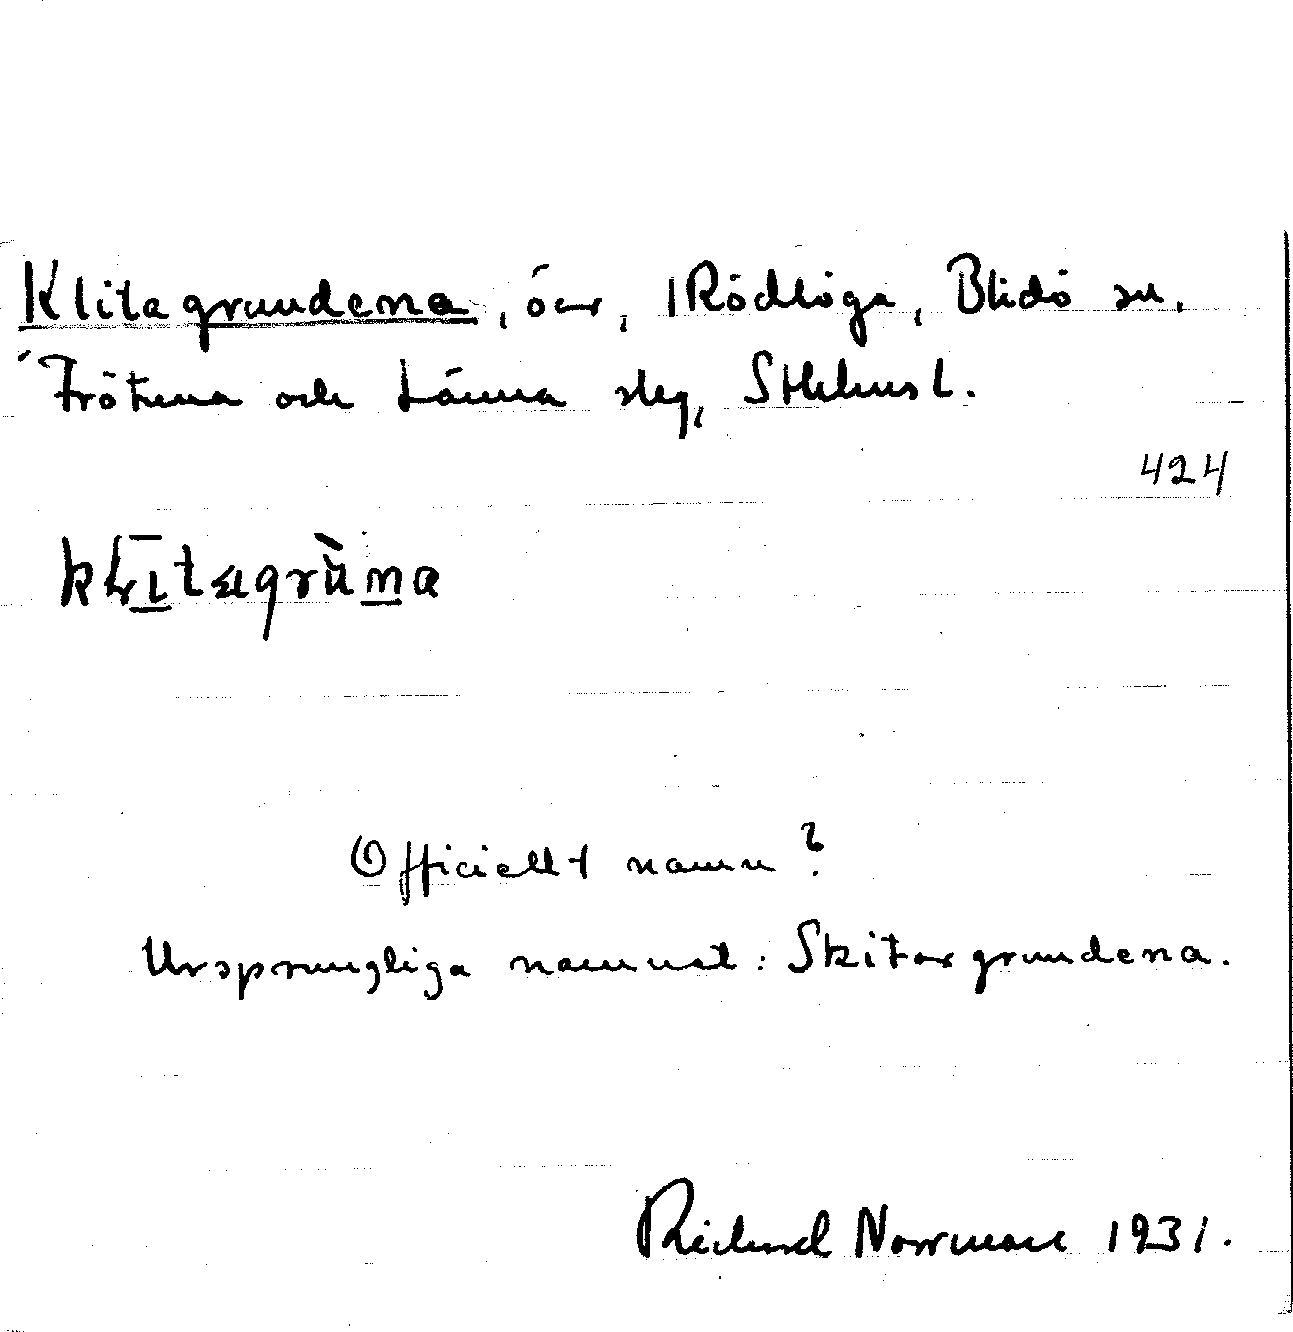 Klitagrundena, öar, Rödlöga, Blidö sn.
Frötuna och Länna slg, Sthlms l.
424
klītagrùna
Officiellt namn?
Ursprungliga namnet: Skitargrundena.
Richard Norrman 1931.